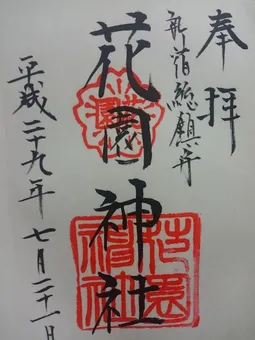 奉拝
新宿総鎮守
花園神社
平成二十九年七月二十一日
花園神社